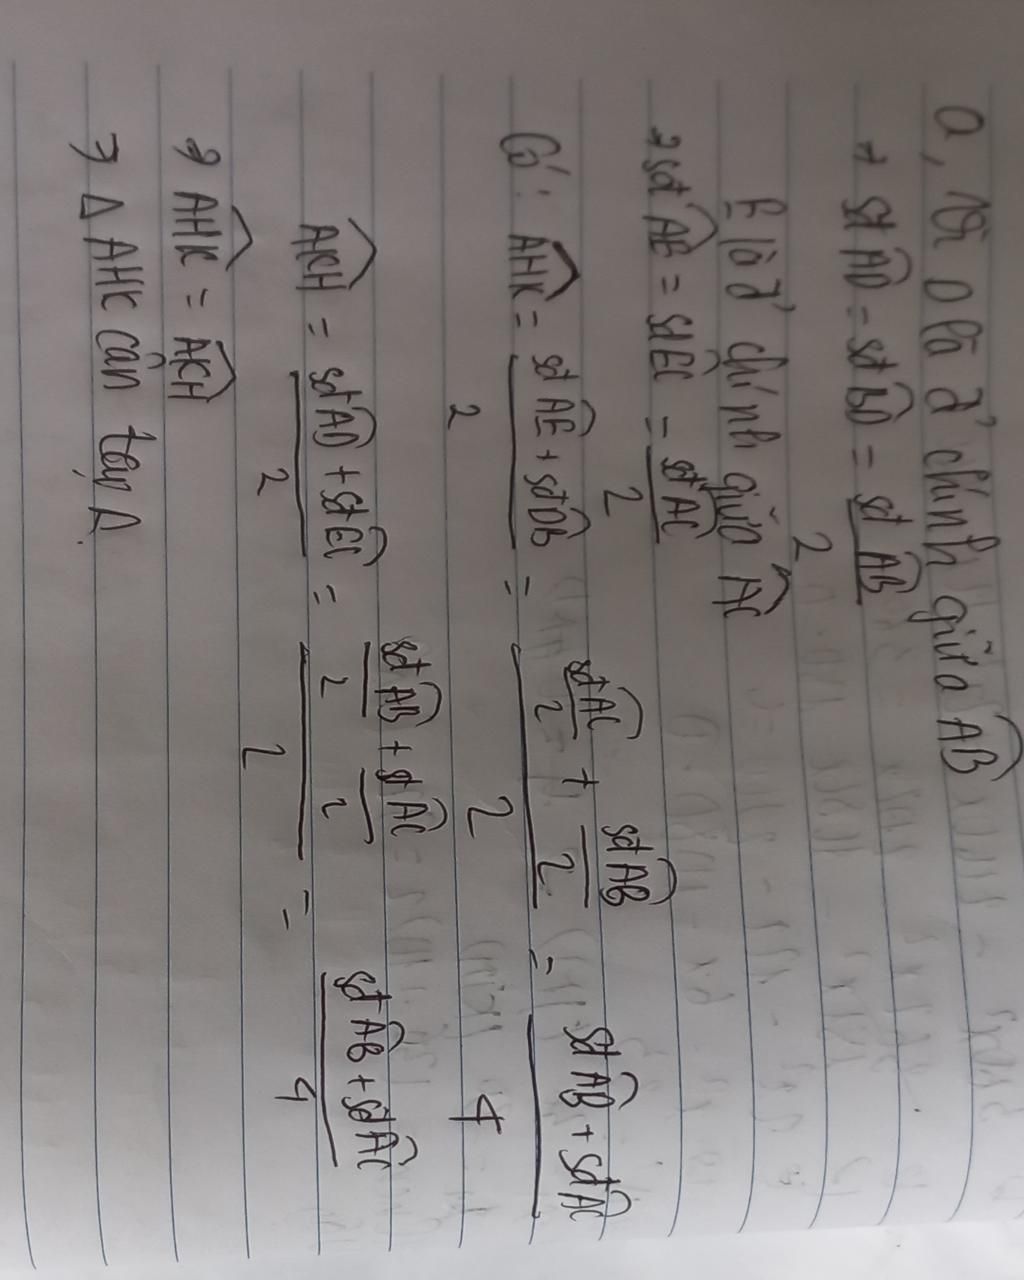 a, Vì D là đ' chính giữa AB
→ sđ AD = sđ BD = sđ AB / 2
E là đ' chính giữa AC
→ sđ AE = sđ EC = sđ AC / 2
Có: AHK = (sđ AE + sđ DB) / 2 = (sđ AC / 2 + sđ AB / 2) / 2 = (sđ AB + sđ AC) / 4
AKH = (sđ AD + sđ EC) / 2 = (sđ AB / 2 + sđ AC / 2) / 2 = (sđ AB + sđ AC) / 4
→ AHK = AKH
→ Δ AHK cân tại A.